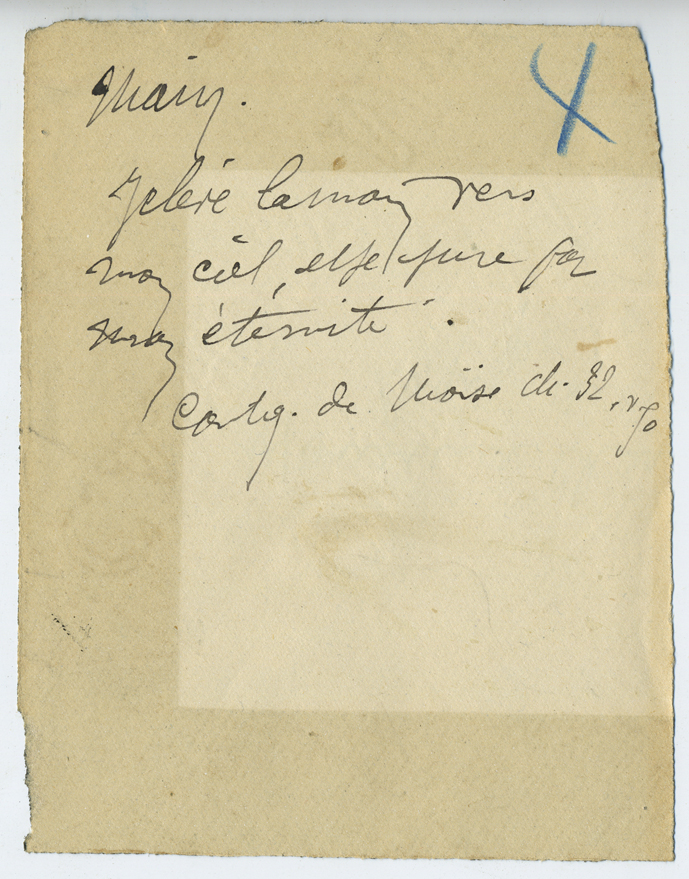 Main.
4
Je lève la main vers
mon ciel, et je jure par
mon éternité".
Cantiq. de Moïse ch. 32, v. 40